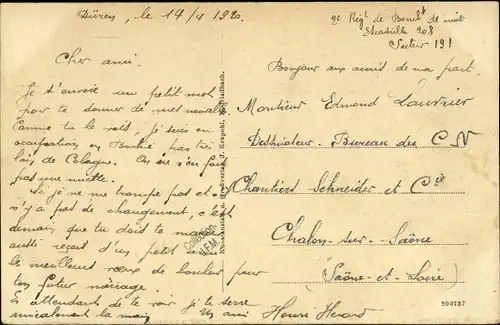 Düren, le 14/4 1920.
2e Régt de Bombt de nuit
Escadrille 208
Secteur 191
Cher ami.
Je t'envoie un petit mot
pour te donner de mes nouvelles
Comme tu le vois, je suis en
occupation en Bochie pas très
loin de Cologne. On s'en fait
pas une miette.
Si je ne me trompe pas et
n'y a pas de changement, c'est
demain que tu dois te marier
aussi reçois d'un petit ami
les meilleurs vœux de bonheur pour
ton futur ménage.
En attendant de te voir je te serre
amicalement la main
Un ami Henri
Kunstanstalt u. Großverlag J. Krapohl, M.Gladbach.
Collection
J.F.M.
Bonjour aux amis de ma part.
Monsieur Edmond Laurrier
Dessinateur. Bureau des C N
Chantiers Schneider et Cie
Chalon-sur-Saône
(Saône-et-Loire)
200137